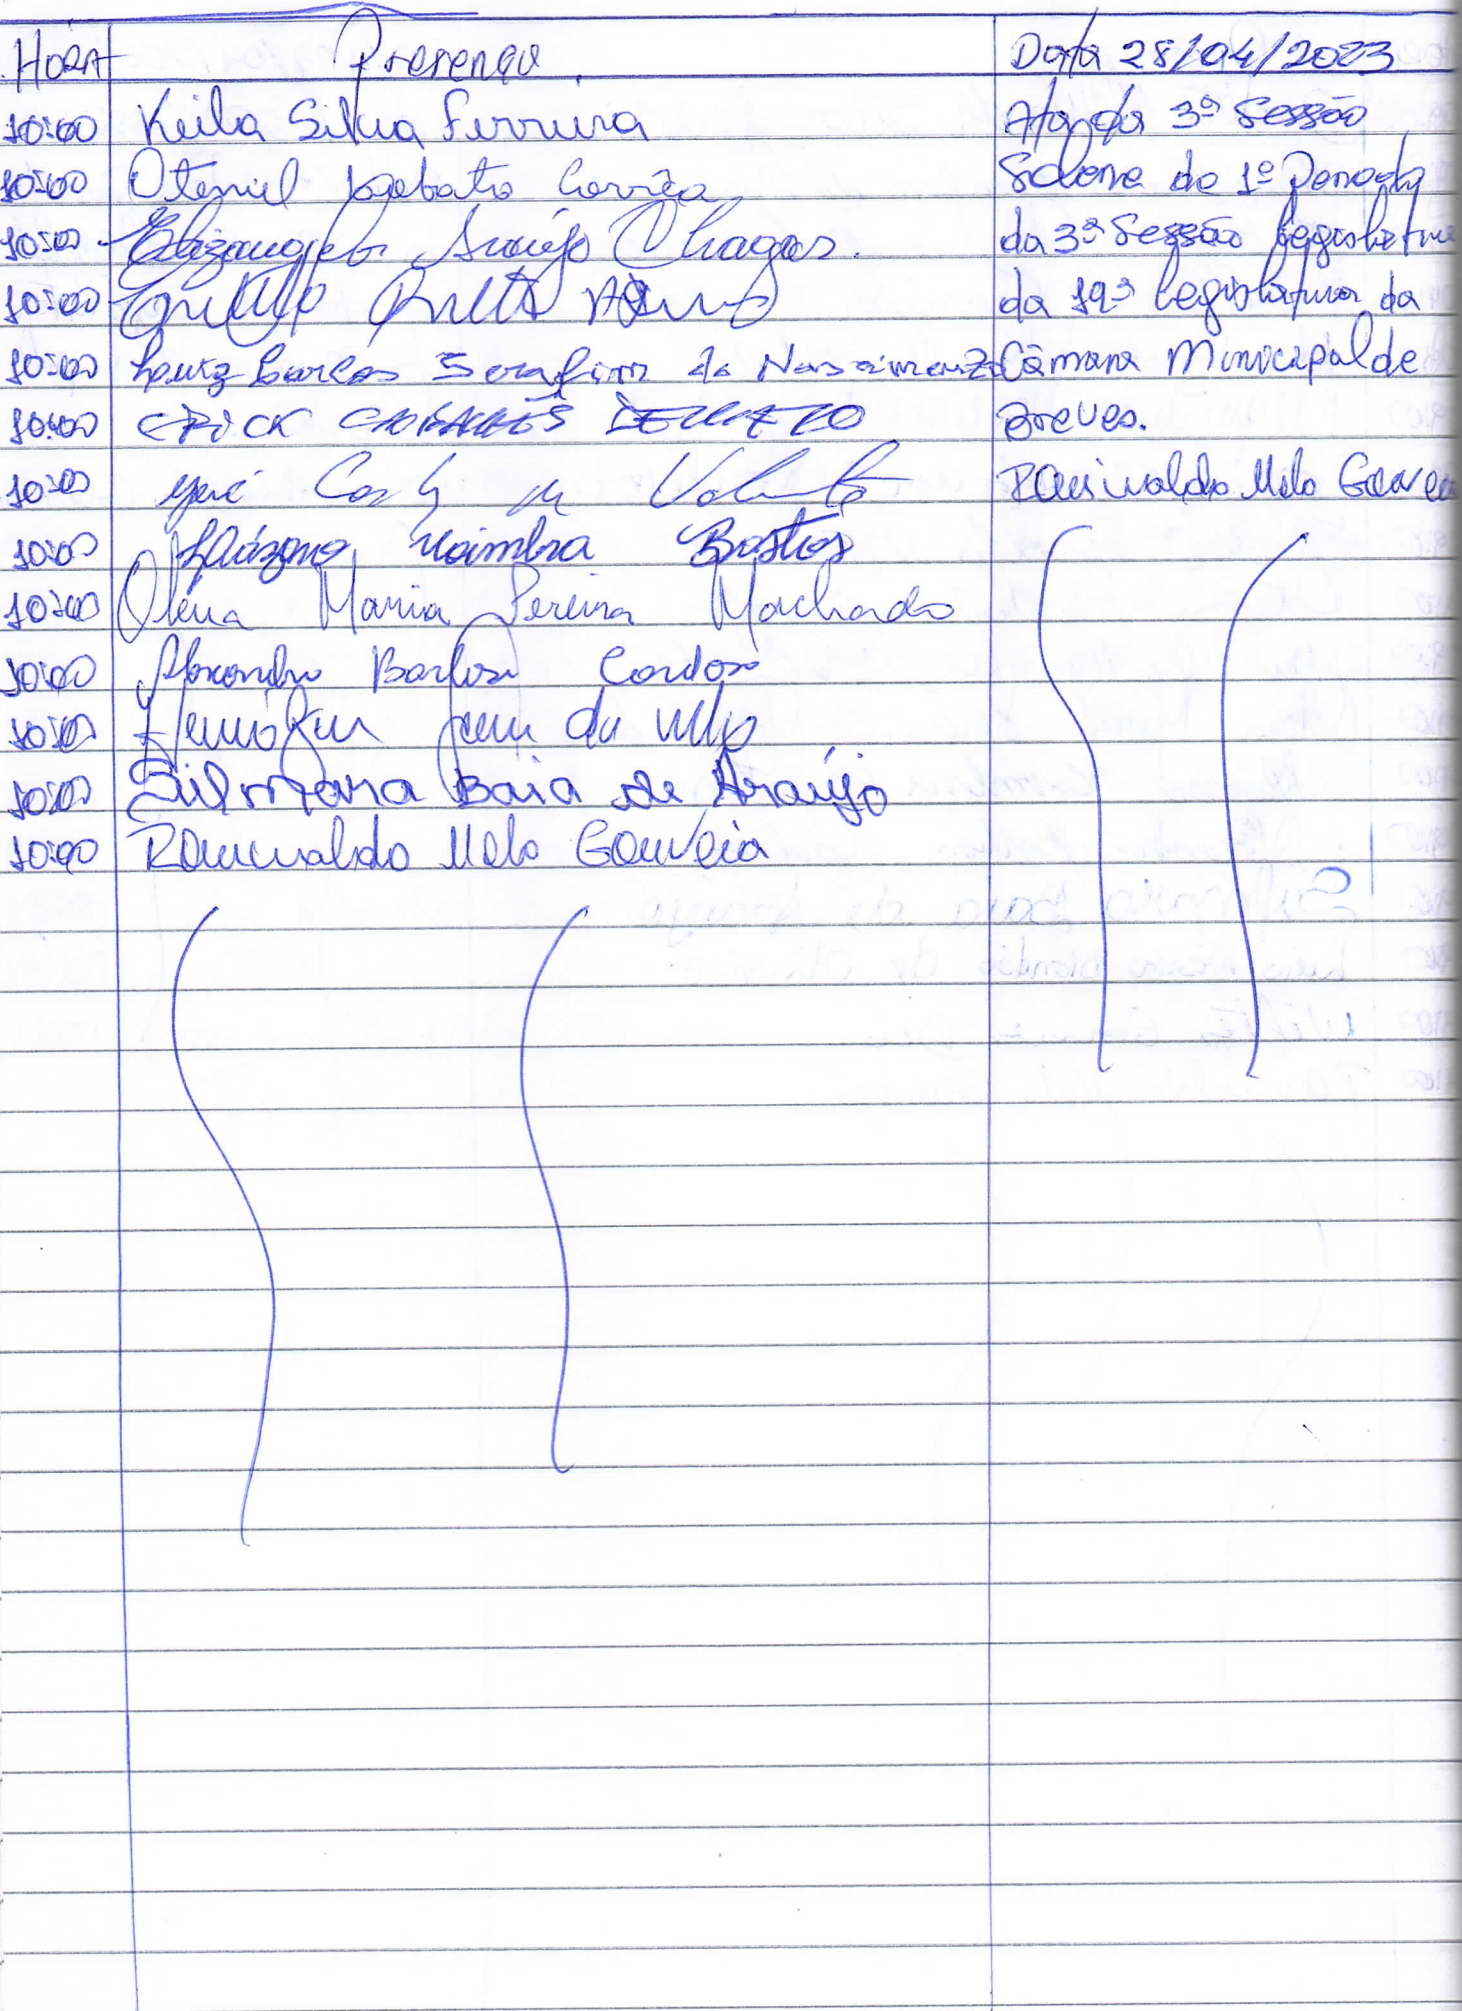 HORA Presença. Data 28/04/2023
10:00 Keila Silva Ferreira Ata da 3ª Sessão
10:00 Oteniel Lobato Corrêa Solene do 1º Periodo
10:00 Elizangela Araújo Chagas. da 3ª Sessão Legislativa
10:00 da 19ª Legislatura da
10:00 Luiz Carlos Serafim do Nascimento Câmara Municipal de
10:00 ERICK Breves.
10:00 José Carlos Romivaldo Melo Gouveia
10:00 Coimbra Bastos
10:00 Olena Maria Pereira Machado
10:00 Alexandre Barbosa Cardoso
10:00 de Melo
10:00 Silmara Baia de Araújo
10:00 Romivaldo Melo Gouveia